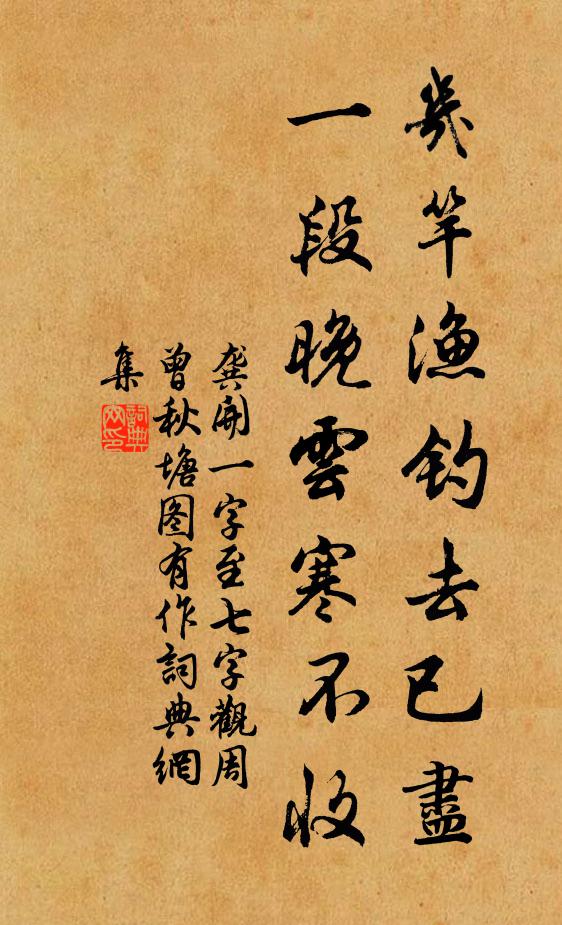 幾竿漁釣去已盡
一段晚雲寒不收
龔開一字至七字觀周
曾秋塘图有作詞典網
集
詞典